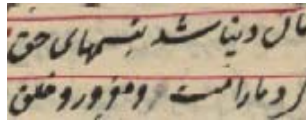 مال دنیا شد تبسمهای حق
کرد مارا مست و مغرور و خلق